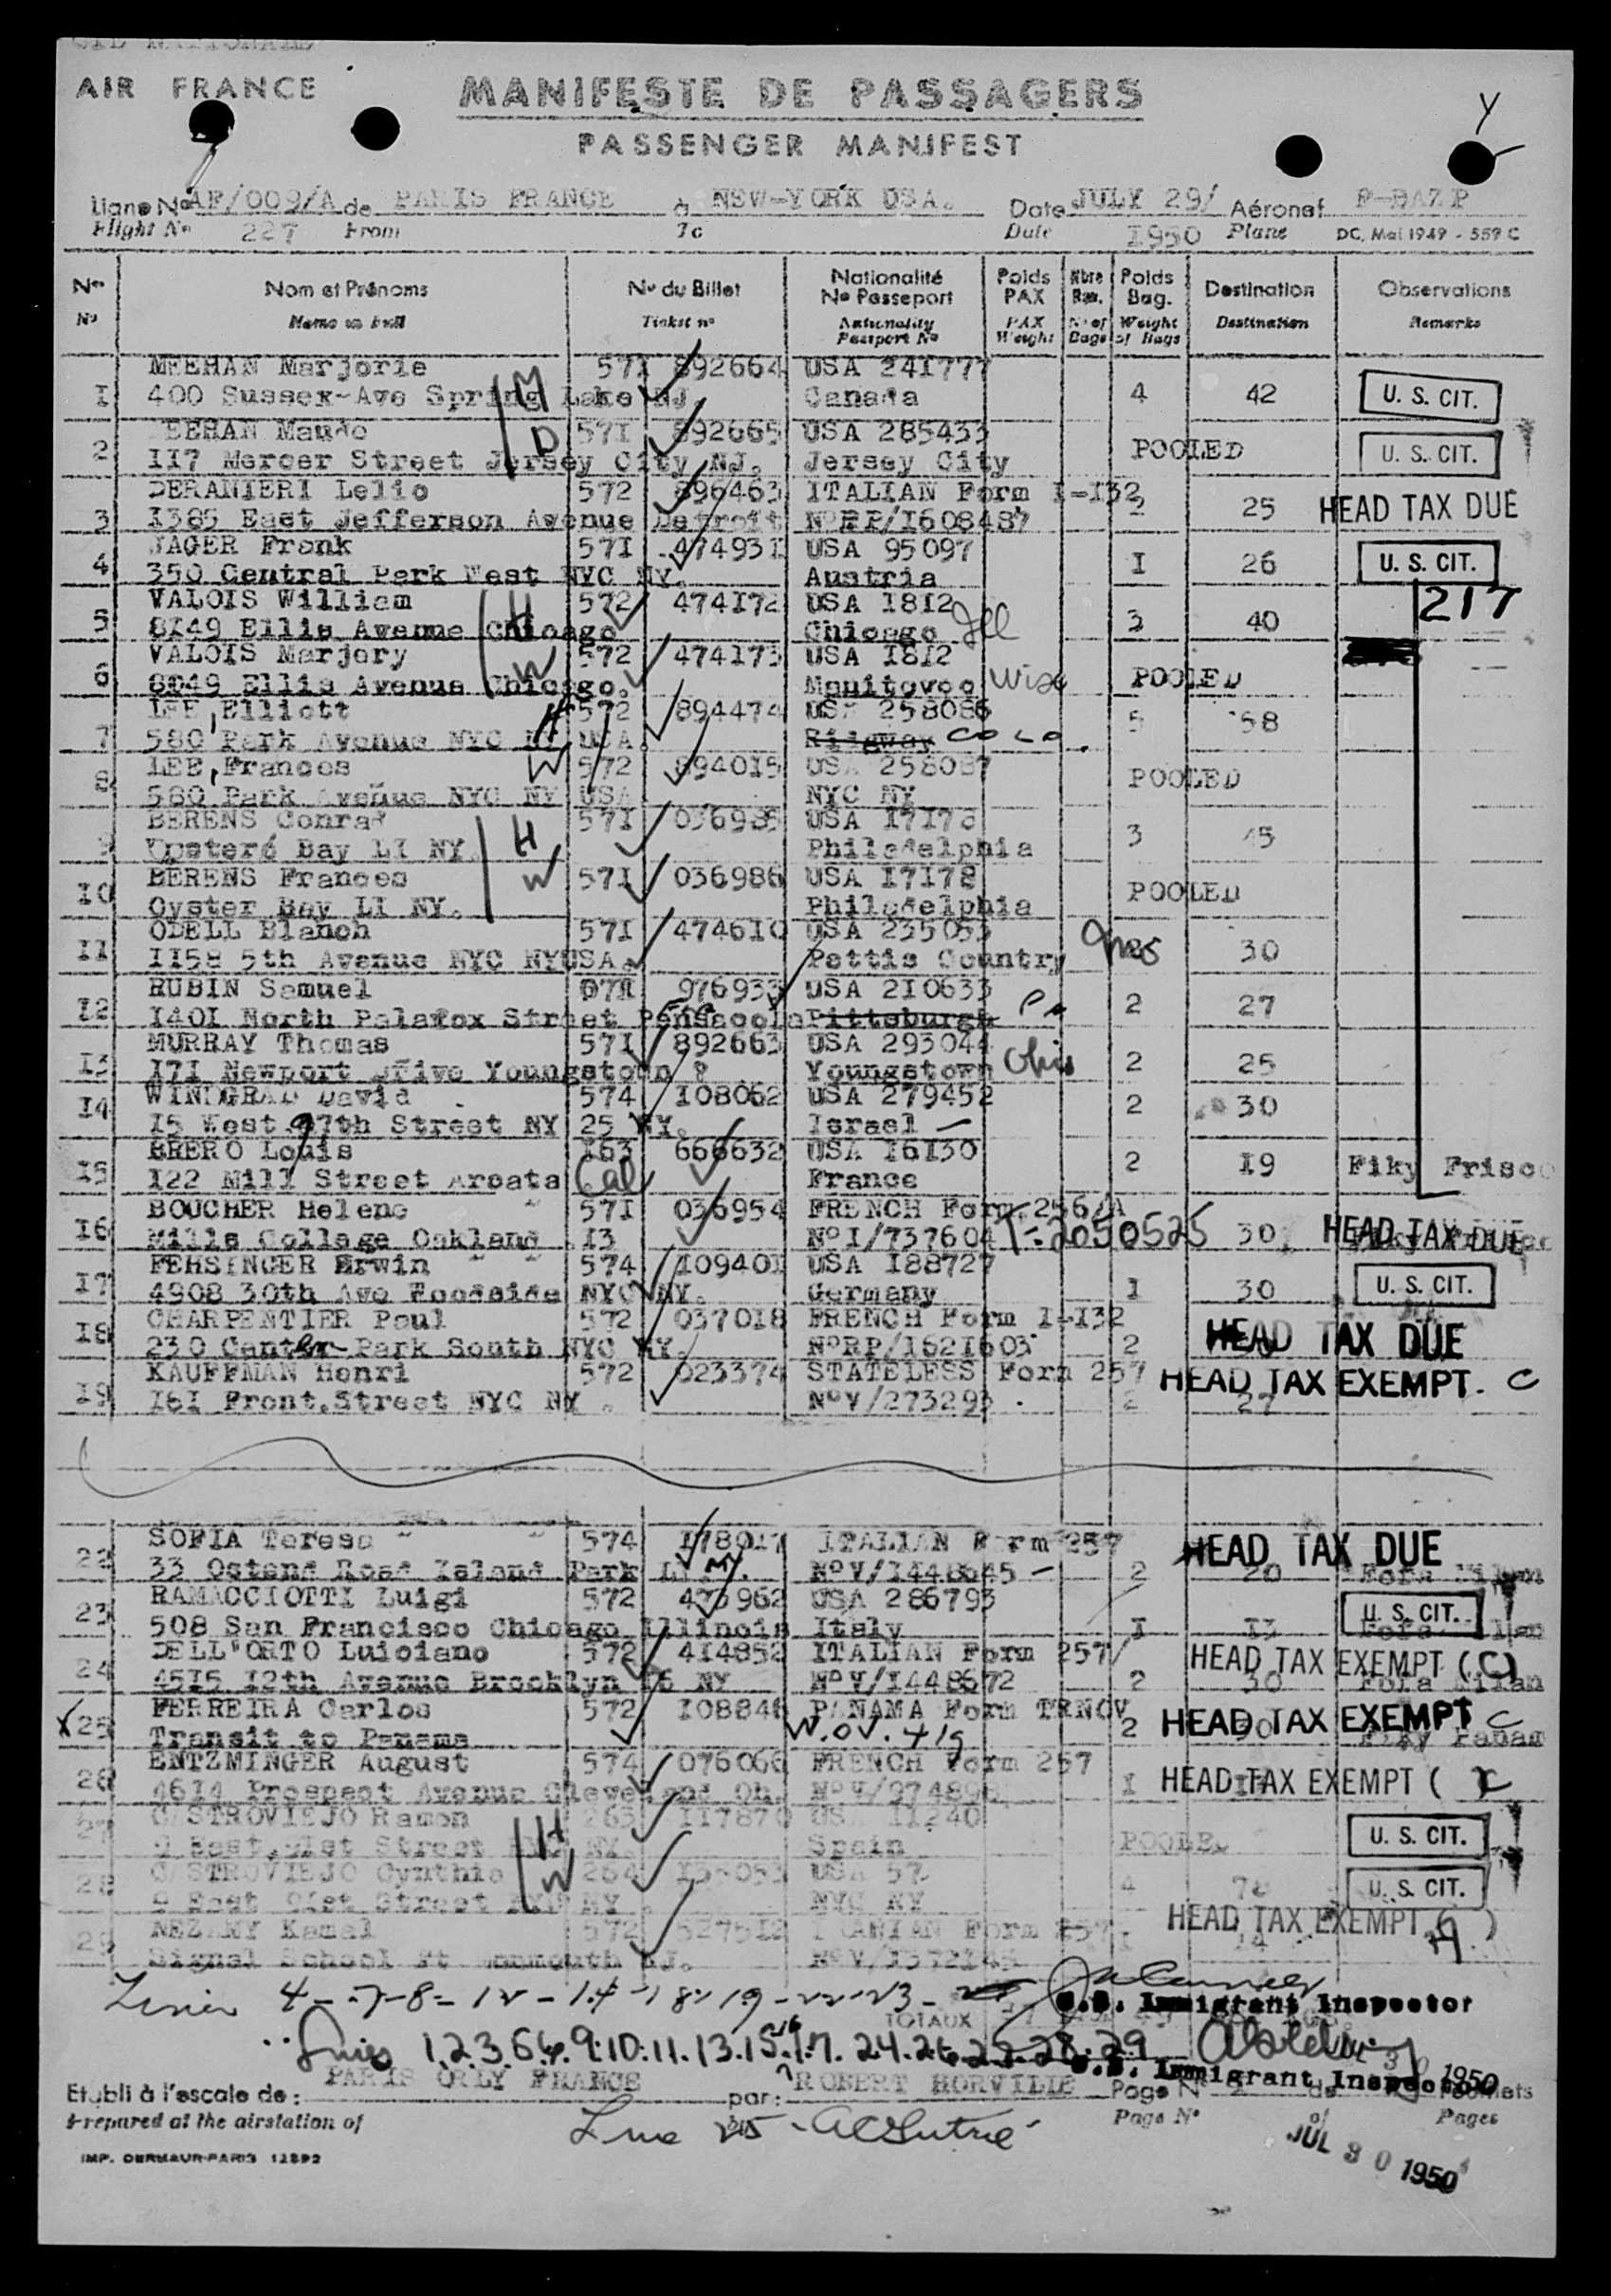 AIR FRANCE
MANIFESTE DE PASSAGERS
PASSENGER MANIFEST
Y
Ligne No AF/009/A de PARIS FRANCE à NEW-YORK USA. Date JULY 29/ Aéronef F-BAZP
Flight No 227 From To Date 1950 Plane DC. Mai 1949 - 559 C
Nos Nom et Prénoms No du Billet Nationalité No Passeport Poids PAX Nbre Bag. Poids Bag. Destination Observations
No Name in full Ticket no Nationality Passport No PAX Weight No of Bags Weight of Bags Destination Remarks
MEEHAN Marjorie 571 892664 USA 241777
I 400 Sussex-Ave Spring Lake NJ. Canada 4 42 U. S. CIT.
M
MEEHAN Maude 571 892665 USA 285433
2 117 Mercer Street Jersey City NJ. Jersey City POOLED U. S. CIT.
D
DERANIERI Lelio 572 896463 ITALIAN Form I-132
3 1385 East Jefferson Avenue Detroit No RP/1608487 2 25 HEAD TAX DUE
JAGER Frank 571 474931 USA 95097
4 350 Central Park West NYC NY. Austria I 26 U. S. CIT.
VALOIS William H 572 474172 USA 1812
5 8149 Ellis Avenue Chicago Chicago Ill 3 40 217
VALOIS Marjory W 572 474173 USA 1812
6 8149 Ellis Avenue Chicago. Manitovoc Wisc POOLED
LEE, Elliott H 572 894474 USA 258086
7 580 Park Avenue NYC NY USA. Ridgway COLO. 5 58
LEE, Frances W 572 894015 USA 258087
8 580 Park Avenue NYC NY USA NYC NY POOLED
BERENS Conrad H 571 036985 USA 17178
9 Oyster Bay LI NY. Philadelphia 3 45
BERENS Frances W 571 036986 USA 17178
10 Oyster Bay LI NY. Philadelphia POOLED
ODELL Blanch 571 474610 USA 235053
11 1158 5th Avenue NYC NYUSA. Pettis Country 30
RUBIN Samuel 571 976933 USA 210633
12 1401 North Palafox Street Pensacola Pittsburgh Pa 2 27
MURRAY Thomas 571 892663 USA 293044
13 171 Newport Drive Youngstown Youngstown Ohio 2 25
WINOGRAD David 574 108062 USA 279452
14 15 West 97th Street NY 25 NY. Israel 2 30
BRERO Louis 163 666632 USA 16130
15 122 Mill Street Arcata Cal France 2 19 Fiky Frisco
BOUCHER Helene 571 036954 FRENCH Form 256/A
16 Mills Collage Oakland 13 No I/737604 T-2050525 30 HEAD TAX DUE
FEHSINGER Erwin 574 109401 USA 188727
17 4908 30th Ave Woodside NYC NY. Germany I 30 U. S. CIT.
CHARPENTIER Paul 572 037018 FRENCH Form I-132
18 230 Central Park South NYC NY. No RP/1621603 2 HEAD TAX DUE
KAUFFMAN Henri 572 023374 STATELESS Form 257
19 161 Front.Street NYC NY. No V/273293 2 27 HEAD TAX EXEMPT. C
SOFIA Teresa 574 178017 ITALIAN Form 257
22 33 Ostend Road Island Park LI. NY. No V/1448645 2 20 HEAD TAX DUE Fora Milan
RAMACCIOTTI Luigi 572 475962 USA 286793
23 508 San Francisco Chicago Illinois Italy I 13 U. S. CIT.
DELL'ORTO Luiciano 572 414852 ITALIAN Form 257
24 4515 12th Avenue Brooklyn 16 NY No V/1448672 2 30 HEAD TAX EXEMPT (C) Fora Milan
FERREIRA Carlos 572 108846 PANAMA Form TRNOV
X 25 Transit to Panama 2 HEAD TAX EXEMPT C Fiky Panam
ENTZMINGER August 574 076066 FRENCH Form 257
26 4614 Prospect Avenue Cleveland Oh. No V/974898 I HEAD TAX EXEMPT ( C
CASTROVIEJO Ramon H 263 117870 USA 11240
27 9 East 91st Street NYC NY. Spain POOLED U. S. CIT.
CASTROVIEJO Cynthia W 264 USA 57
28 9 East 91st Street NYC NY NYC NY 4 78 U. S. CIT.
NEZAMY Kamal 572 527512 IRANIAN Form 257
29 Signal School Ft Monmouth NJ. I 14 HEAD TAX EXEMPT
Lines 4-7-8-12-14-18-19-22-23-
U.S. Immigrant Inspector
TOTAUX
Lines 1.2.3.5.6.9.10.11.13.15.16.17.24.26.27.28.29
JUL 30 1950
U.S. Immigrant Inspector
Etabli à l'escale de : PARIS ORLY FRANCE par : ROBERT HORVILLE Page No de Feuillets
Prepared at the airstation of by Page No of Pages
Line 25
JUL 30 1950
IMP. DERMAUR-PARIS 12892